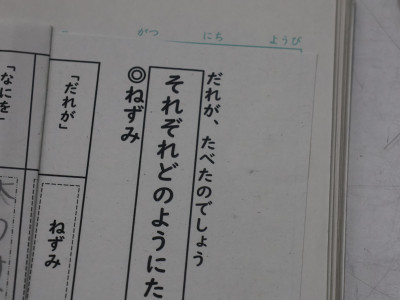 がつ にち ようび
だれが、たべたのでしょう
それぞれどのようにた
◎ねずみ
「だれが」 ねずみ
「なにを」